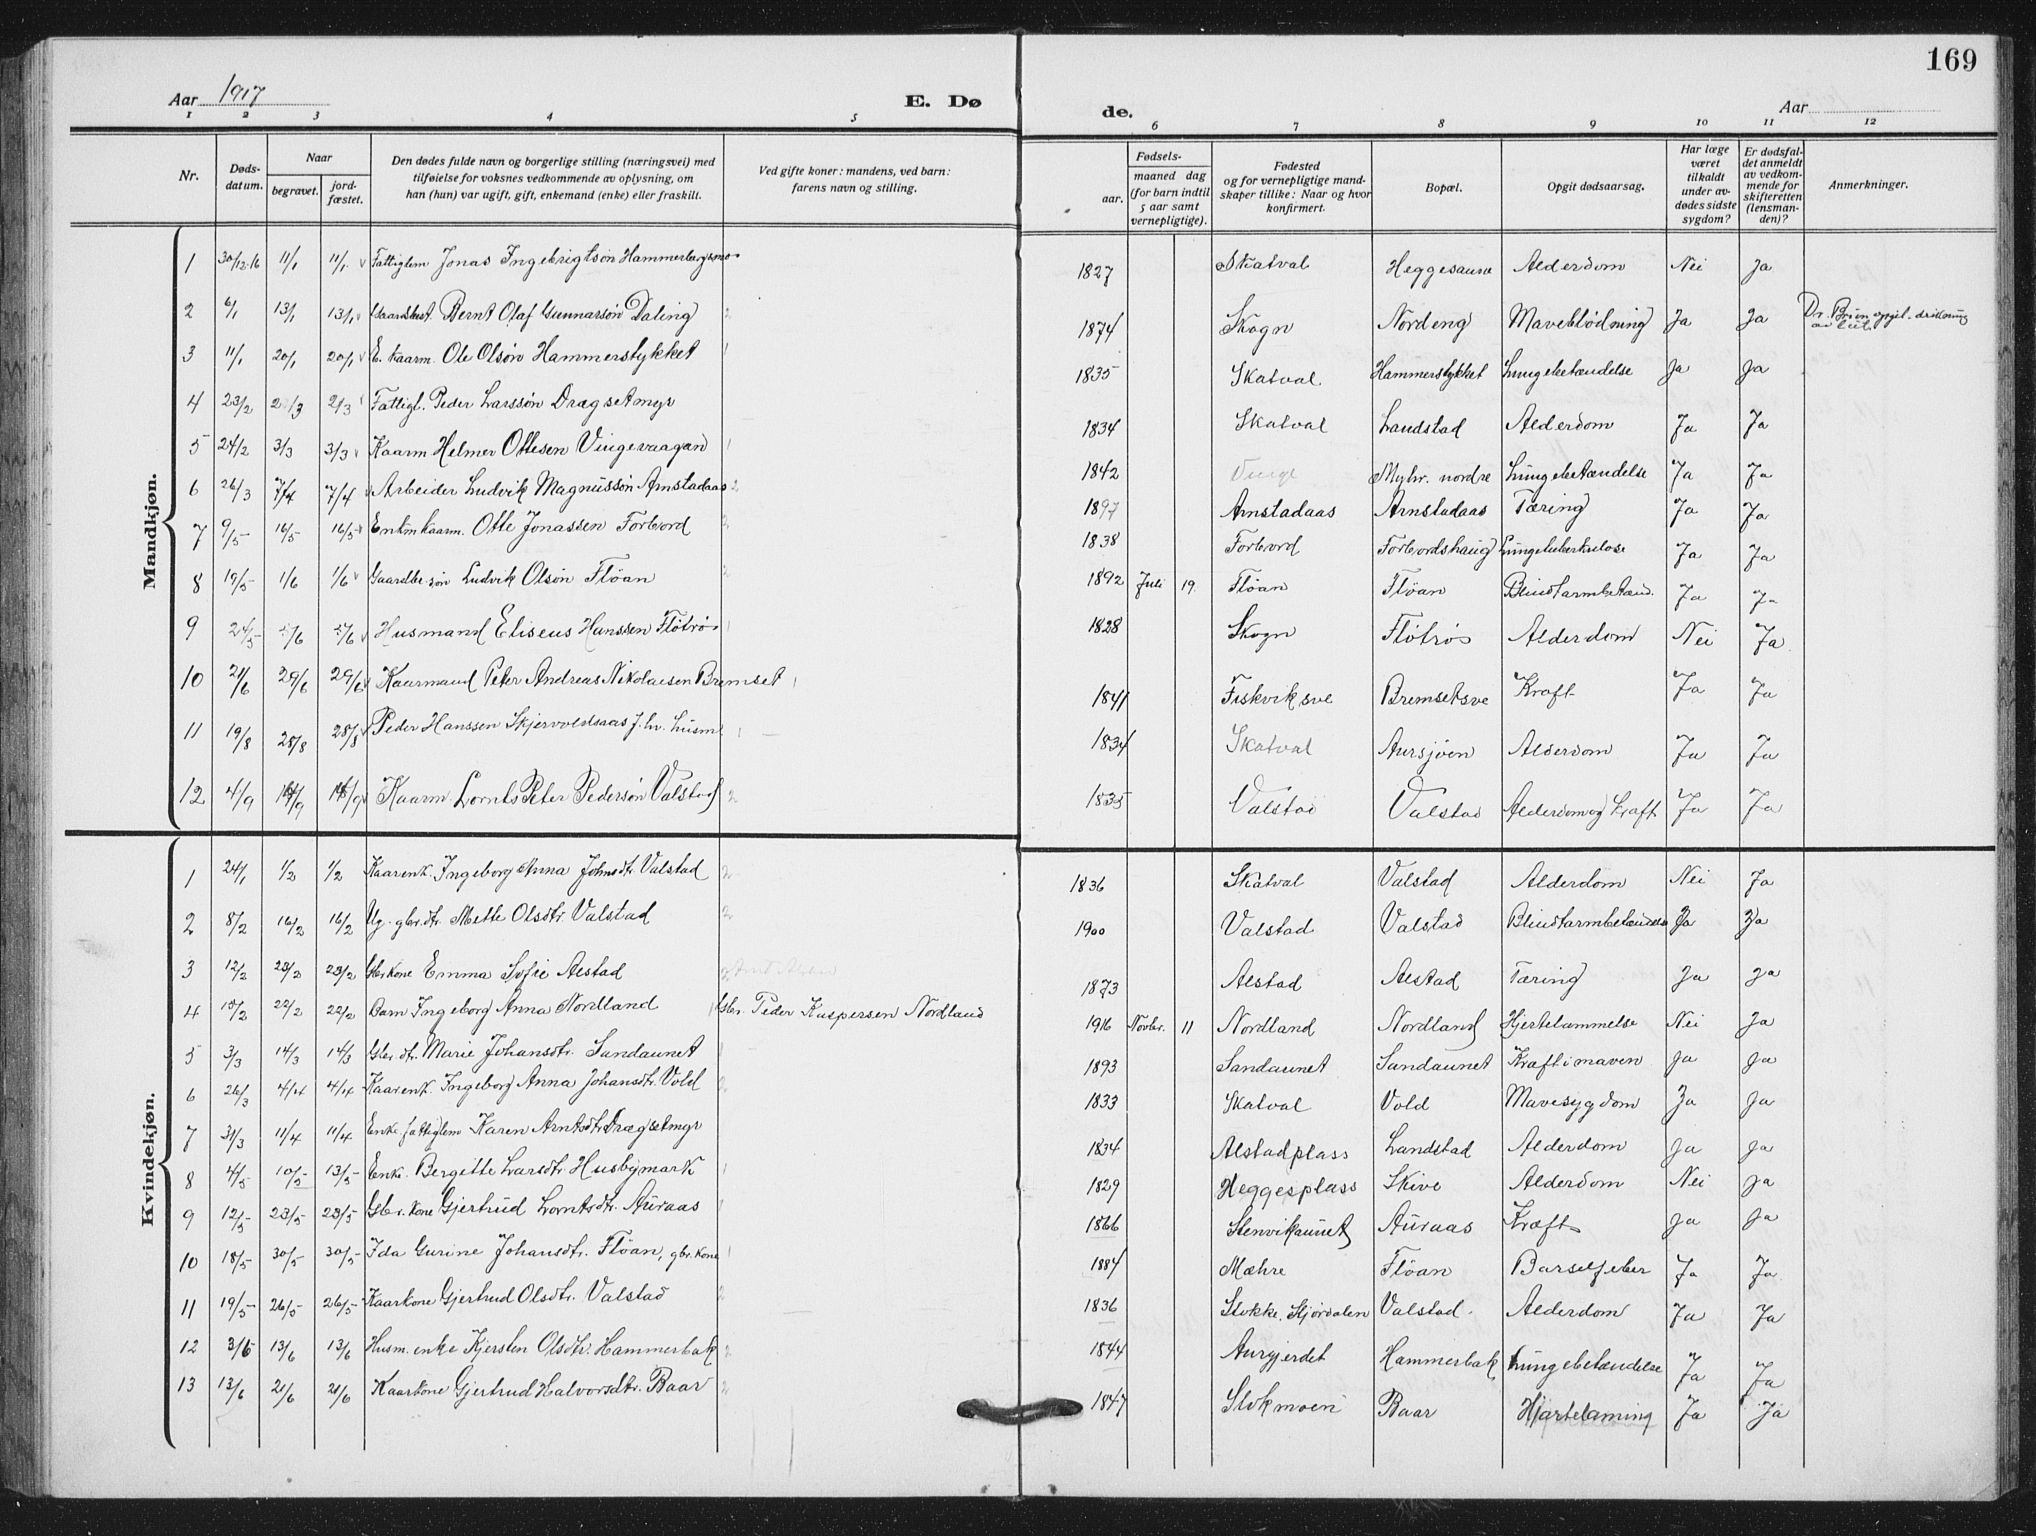 169
Aar 1917
E. Dø
de.
Aar
1 2 3 4 5 6 7 8 9 10 11 12
Nr.
Døds-
datum.
Naar
begravet.
jord-
fæstet.
Den dødes fulde navn og borgerlige stilling (næringsvei) med
tilføielse for voksnes vedkommende av oplysning, om
han (hun) var ugift, gift, enkemand (enke) eller fraskilt.
Ved gifte koner: mandens, ved barn:
farens navn og stilling.
Fødsels-
aar.
maaned dag
(for barn indtil
5 aar samt
vernepligtige).
Fødested
og for vernepligtige mand-
skaper tillike: Naar og hvor
konfirmert.
Bopæl.
Opgit dødsaarsag.
Har læge
været
tilkaldt
under av-
dødes sidste
sygdom?
Er dødsfal-
det anmeldt
av vedkom-
mende for
skifteretten
(lensman-
den)?
Anmerkninger.
Mandkjøn.
1 30/12.16 11/1 11/1 Fattiglem Jonas Ingebrigtsön Hammerbergsmo 1827 Skatval Heggesaune Alderdom Nei Ja
2 6/1 13/1 13/1 Bernt Olaf Gunnarsön Daling 1874 Skogn Nordeng Maveblödning Ja Ja
3 11/1 20/1 20/1 E. kaarm. Ole Olsön Hammerstykket 1835 Skatval Hammerstykket Lungebetændelse Ja Ja
4 23/2 2/3 Fattigl. Peder Larssön Drægsetmyr 1834 Skatval Landstad Alderdom Ja Ja
5 24/2 3/3 3/3 Kaarm Helmer Ottesen Vingevaagan 1842 Vinge Myhr. nordre Lungebetændelse Ja Ja
6 26/3 7/4 7/4 Arbeider Ludvik Magnussön Arnstadaas 1897 Arnstadaas Arnstadaas Tæring Ja Ja
7 9/5 16/5 16/5 Enkm kaarm. Otte Jonassen Forbord 1838 Forbord Forbordshaug Lungetuberkulose Ja Ja
8 19/5 1/6 1/6 Gaardbr. sön Ludvik Olsön Flöan 1892 Juli 19. Flöan Flöan Blindtarmbetænd. Ja Ja
9 24/5 /6 /6 Husmand Eliseus Hanssen Flötrös 1828 Skogn Flötrös Alderdom Nei Ja
10 21/6 29/6 29/6 Kaarmand Peter Andreas Nikolaisen Bremset 1841 Fiskviksve Bremsetsve Kræft Ja Ja
11 19/8 28/8 28/8 Peder Hanssen Skjervoldsaas f. hv. husm 1834 Skatval Aursjöen Alderdom Ja Ja
12 4/9 14/9 Kaarm. Lornts Peter Pedersön Valstad 1835 Valstad Valstad Alderdom og kræft Ja Ja
Kvindekjøn.
1 24/1 1/2 1/2 Kaarenk. Ingeborg Anna Johnsdtr Valstad 1836 Skatval Valstad Alderdom Nei Ja
2 8/2 16/2 16/2 Ug. gbr.dtr. Mette Olsdtr. Valstad 1900 Valstad Valstad Blindtarmbetændelse Ja Ja
3 12/2 23/2 23/2 Gbr kone Emma Sofie Alstad 1873 Alstad Alstad Tæring Ja Ja
4 15/2 22/2 22/2 Barn Ingeborg Anna Nordland Gbr. Peder Kaspersen Nordland 1916 Novbr. 11 Nordland Nordland Hjertelammelse Nei Ja
5 3/3 14/3 14/3 Gbr dtr. Marie Johansdtr. Sandaunet 1893 Sandaunet Sandaunet Kræft i maven Ja Ja
6 26/3 4/4 4/4 Kaarenk. Ingeborg Anna Johansdtr. Vold 1833 Skatval Vold Mavesygdom Ja Ja
7 31/3 11/4 11/4 Enke fattiglem Karen Arntsdtr. Drægsetmyr 1834 Alstadplass Landstad Alderdom Ja Ja
8 4/5 10/5 13/5 Enke. Bergitte Larsdtr. Husbymark 1829 Heggesplass Skive Alderdom Nei Ja
9 12/5 23/5 23/5 Gbr. kone Gjertrud Lorntsdtr. Auraas 1866 Stenvikaunet Auraas Kræft Ja Ja
10 18/5 30/5 30/5 Ida Gurine Johansdtr. Flöan, gbr. kone 1884 Mæhre Flöan Barselfeber Ja Ja
11 19/5 26/5 26/5 Kaarkone Gjertrud Olsdtr. Valstad 1836 Stokke. Stjördalen Valstad. Alderdom Ja Ja
12 3/6 13/6 13/6 Husm. enke Kjersten Olsdtr. Hammerbak 1844 Aurgjerdet Hammerbak Lungebetændelse Ja Ja
13 13/6 21/6 21/6 Kaarkone Gjertrud Halvorsdtr. Baar 1847 Stokmoen Baar Hjartelaming Ja Ja